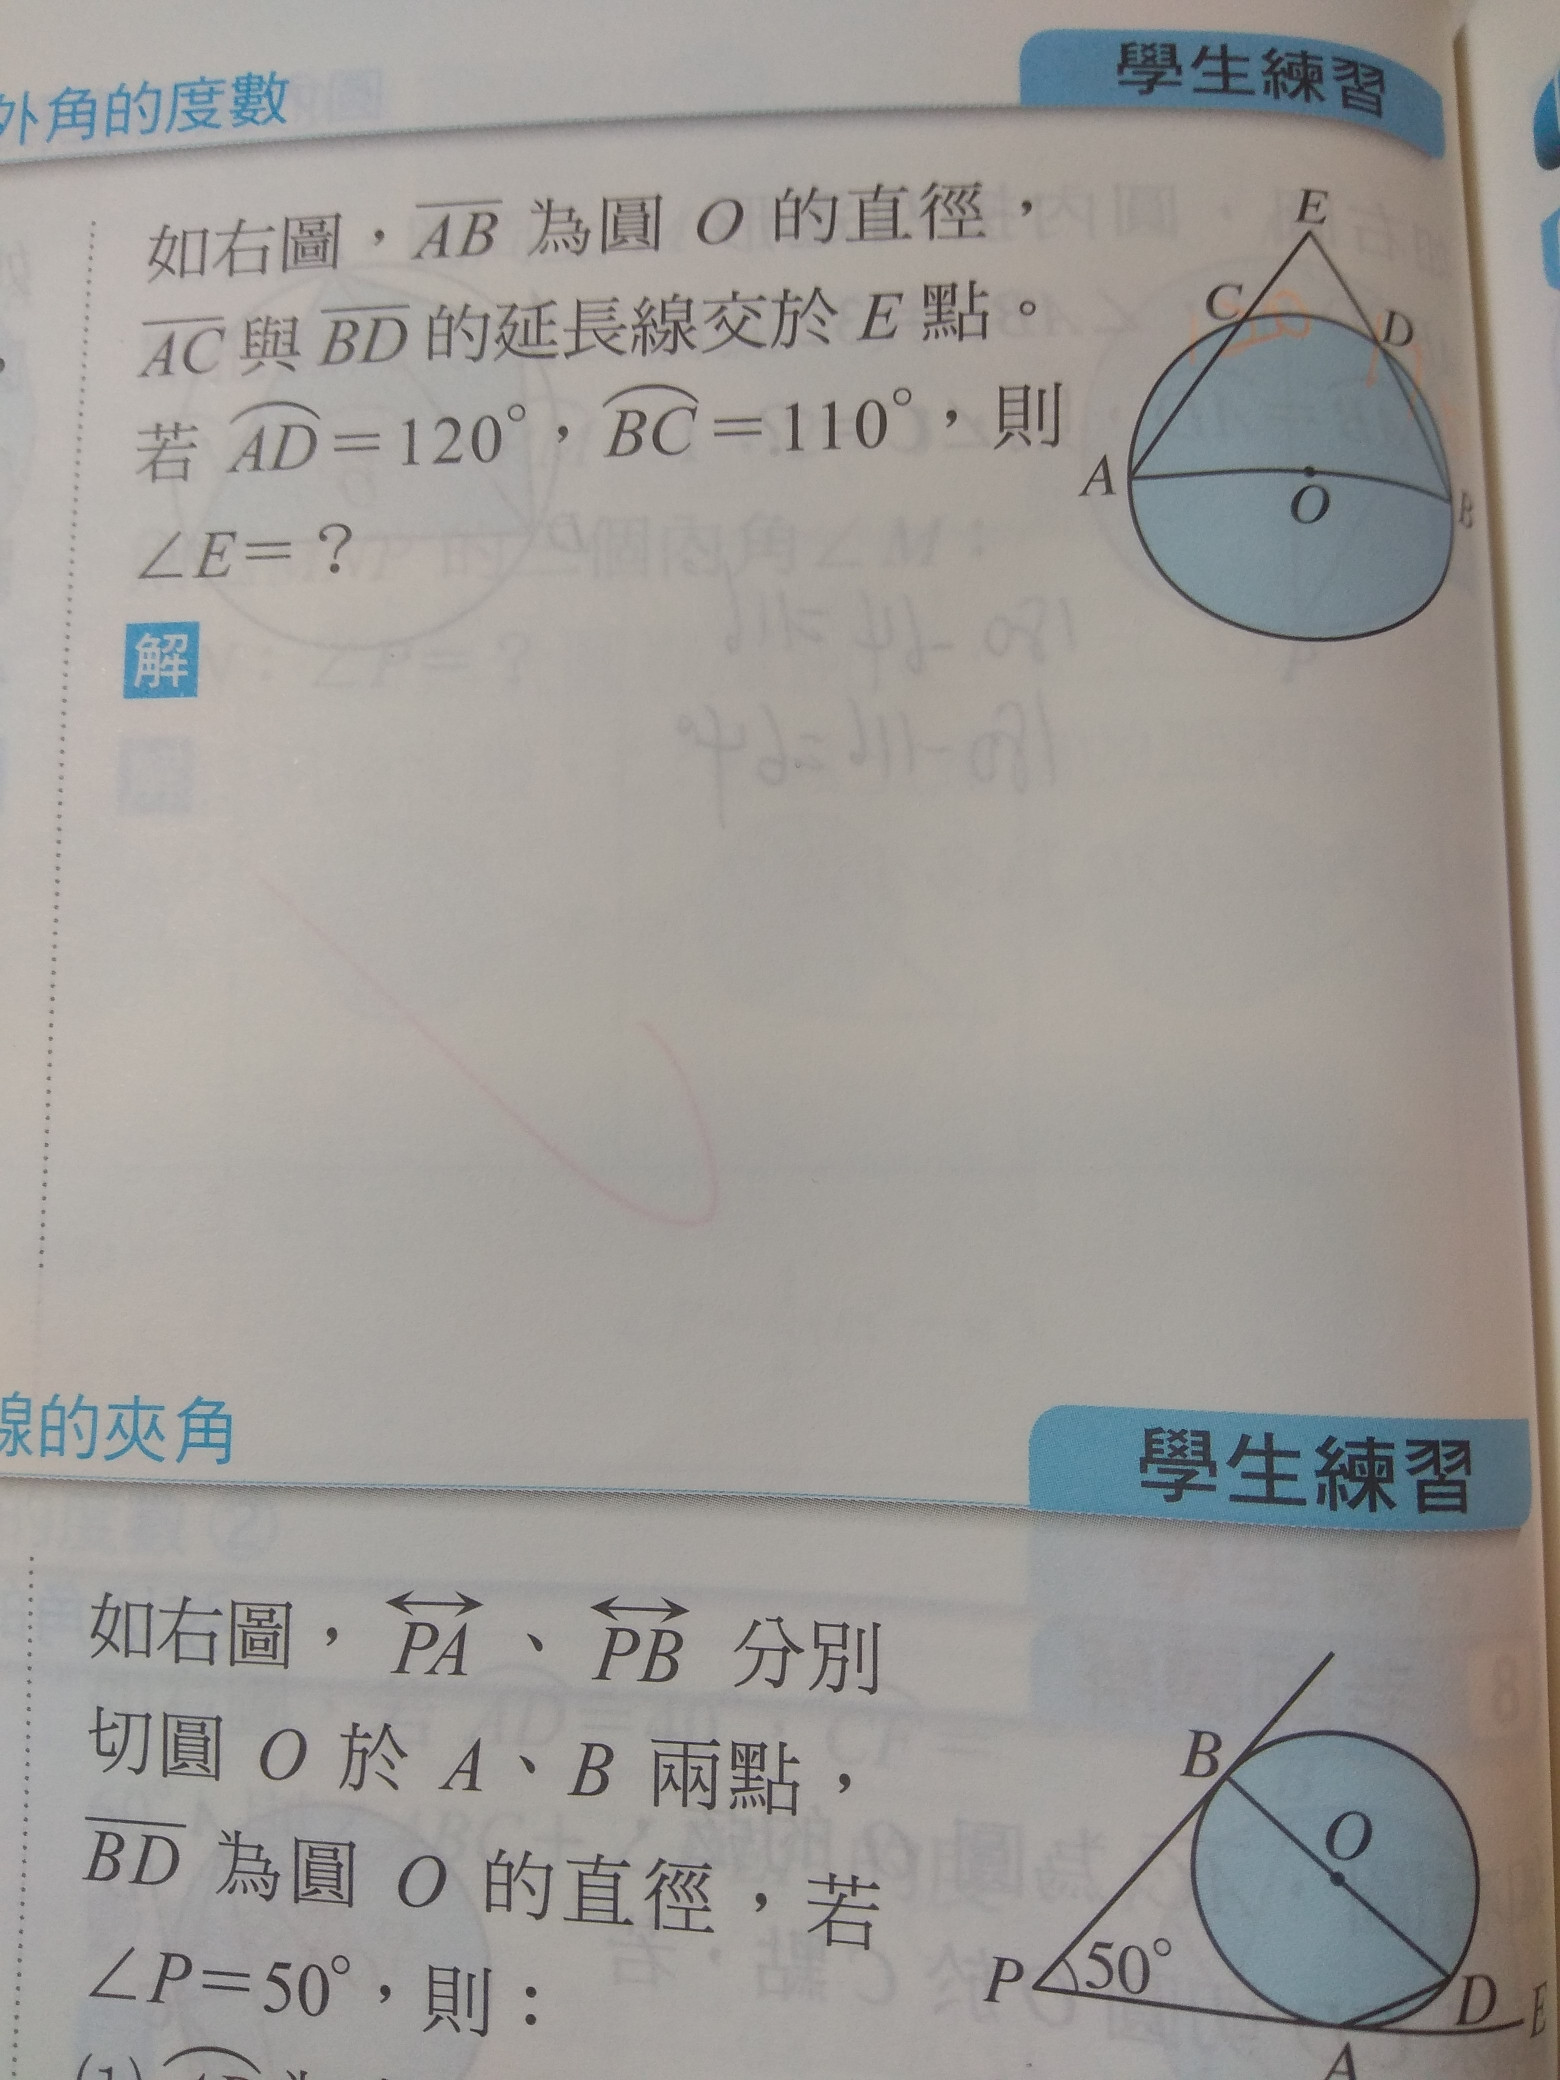 外角的度數
學生練習
如右圖，AB 為圓 O 的直徑，
AC 與 BD 的延長線交於 E 點。
若 AD＝120°，BC＝110°，則
∠E＝？
E
C
D
A
O
B
解
線的夾角
學生練習
如右圖，PA、PB 分別
切圓 O 於 A、B 兩點，
BD 為圓 O 的直徑，若
∠P＝50°，則：
B
O
P
50°
D
E
A